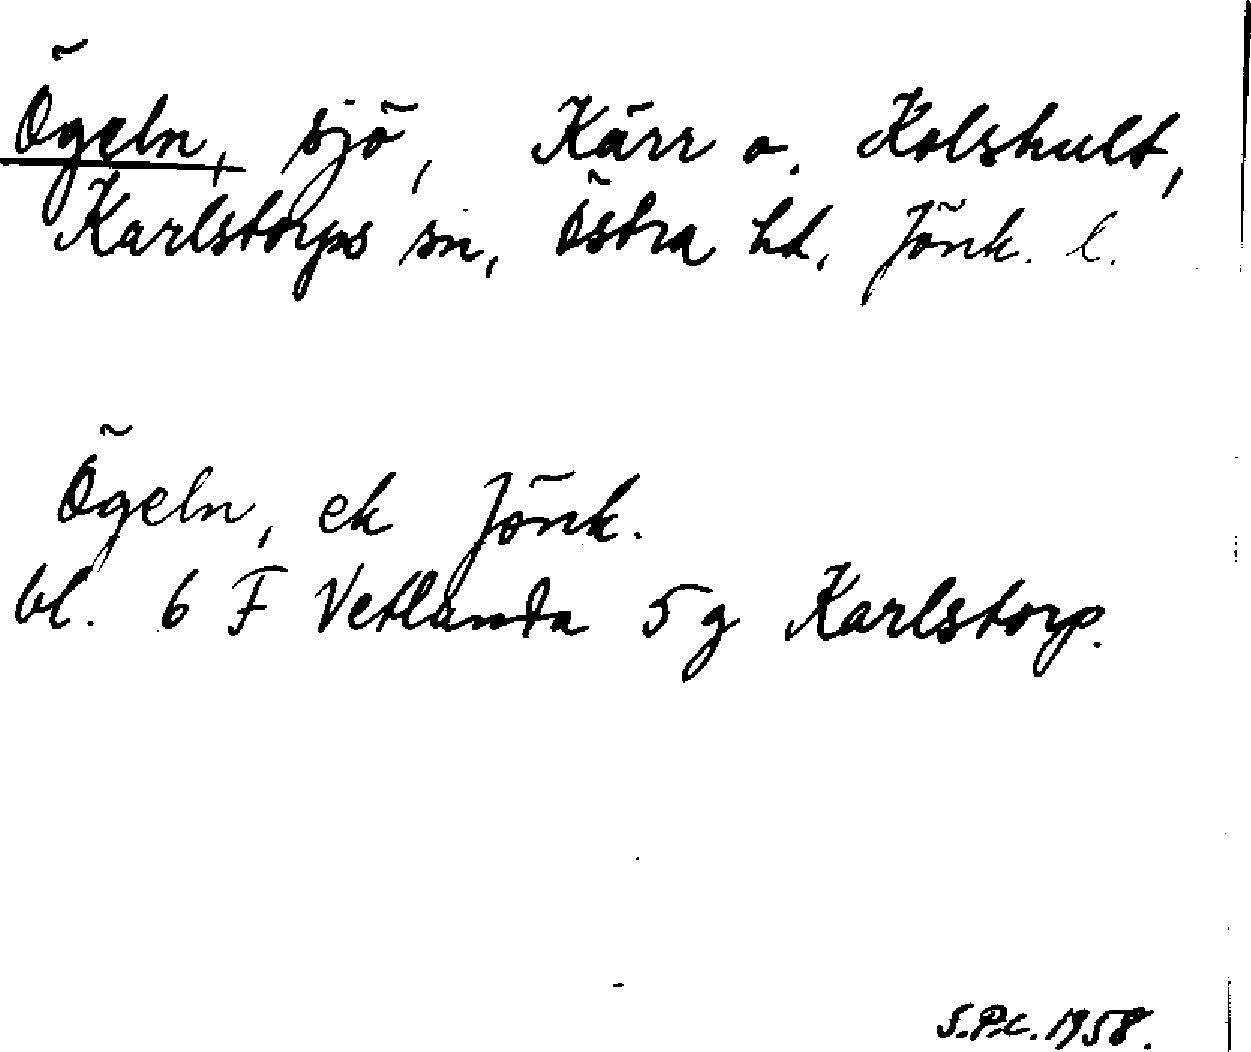 Ögeln, sjö, Kärr o. Kolshult,
Karlstorps sn, Östra hd, Jönk. l.
Ögeln, ek Jönk.
bl. 6 F Vetlanda 5 g Karlstorp.
S.P.C. 1958.